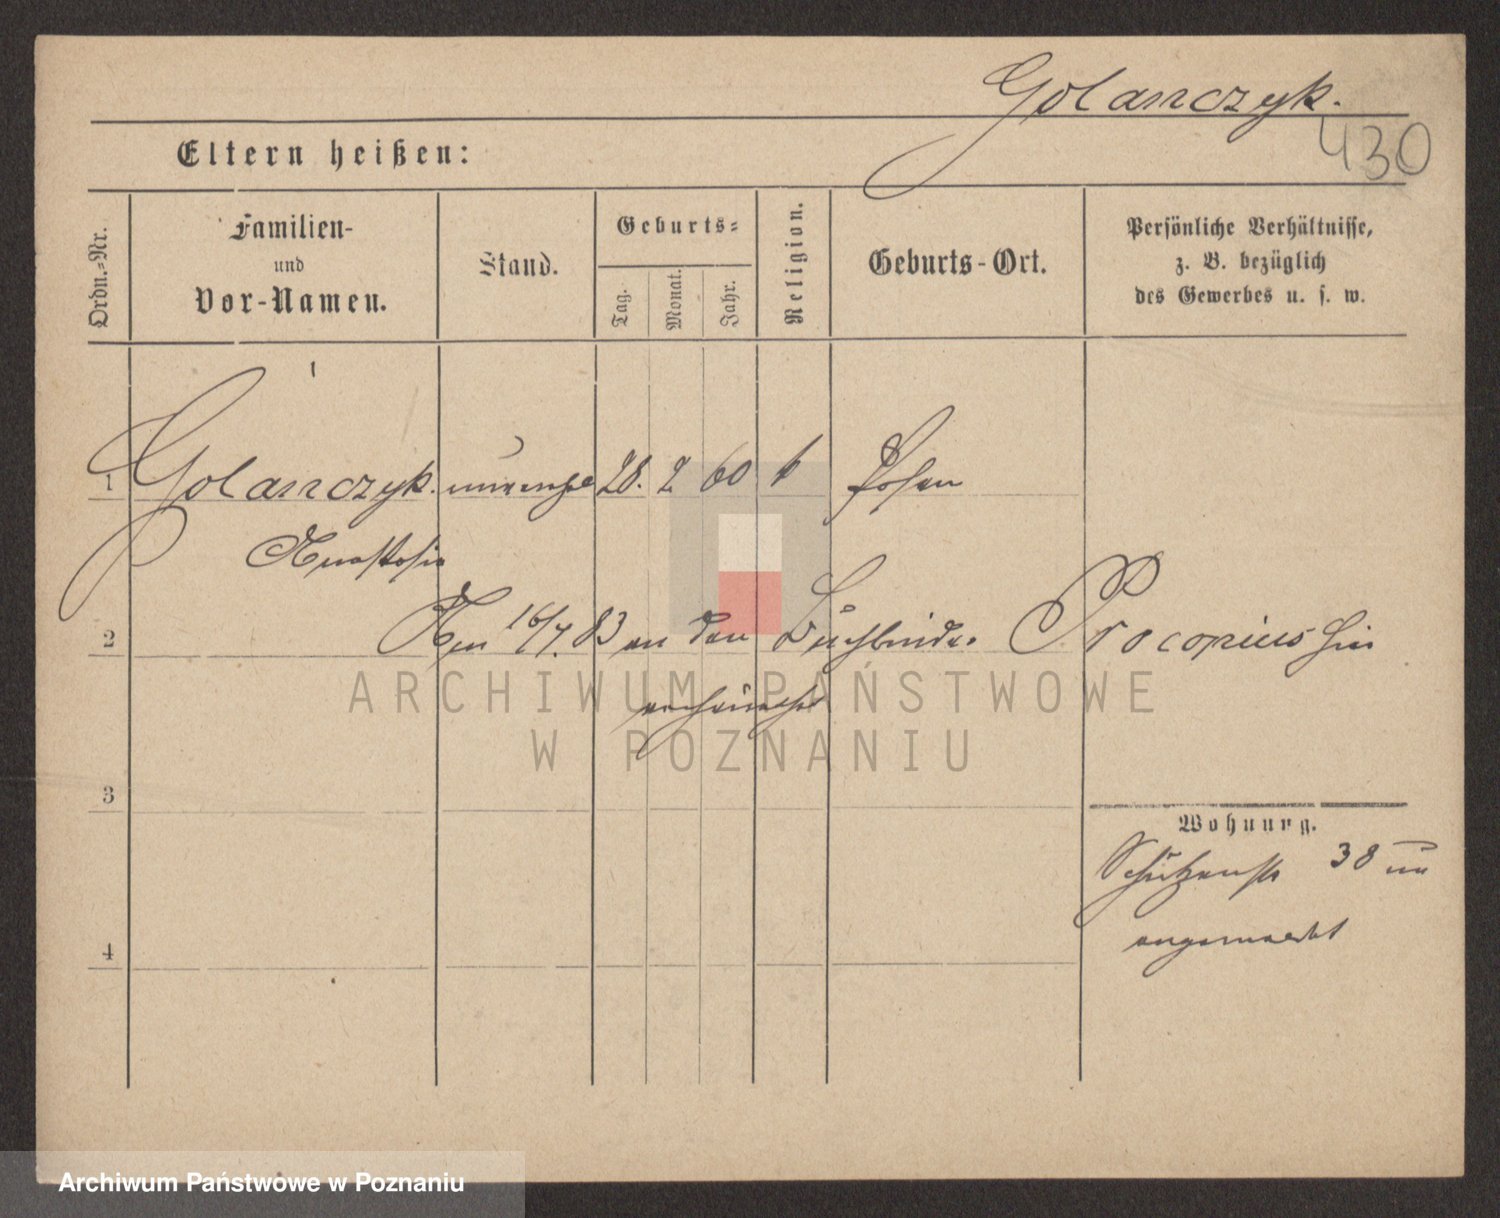 Golanczyk.
430
Eltern heißen:
Ordn.-Nr.
Familien-
und
Vor-Namen.
Stand.
Geburts-
Tag.
Monat.
Jahr.
Religion.
Geburts-Ort.
Persönliche Verhältnisse,
z. B. bezüglich
des Gewerbes u. s. w.
1 Golanczyk. unverehel 28. 2 60 k Posen
Anastasia
2
Am 16/7. 83 an den Buchbinder Procopius hier
verheirathet
ARCHIWUM PAŃSTWOWE
W POZNANIU
3
Wohnung.
Schützenstr 38
angemeldet
4
Archiwum Państwowe w Poznaniu